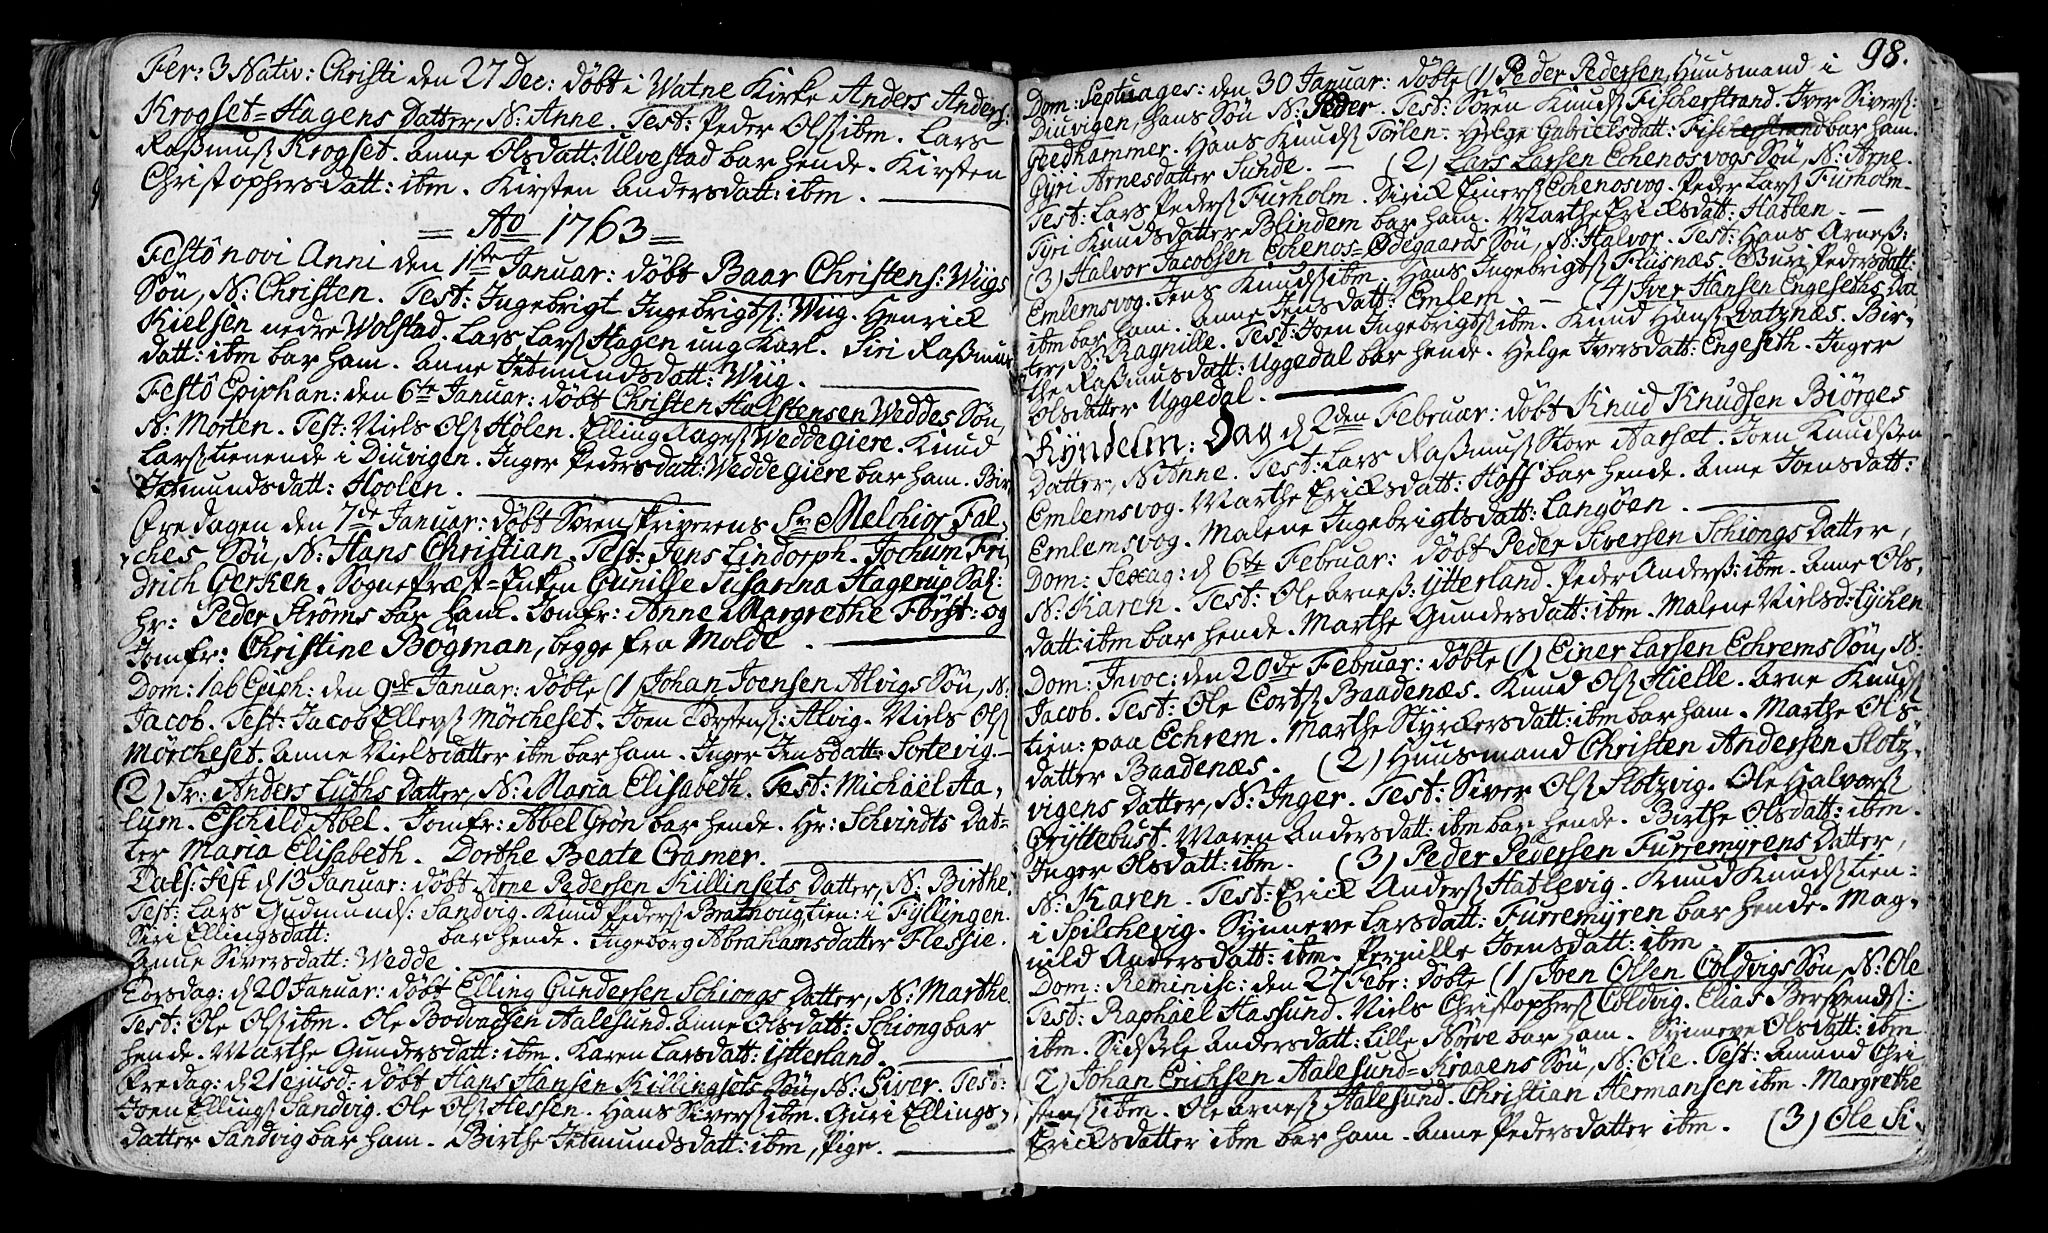 Fer: 3 Nativ: Christi den 27 Dec: döbt i Watne Kirke Anders Anders:
Krogset=Hagens Datter, N: Anne. Test: Peder Ols: ibm. Lars
Rasmus: Krogset. Anne Olsdatt: Ulvestad bar hende. Kirsten
Christophersdatt: ibm. Kirsten Andersdatt: ibm.
= Ao 1763 =
Festô novi Anni den 1ste Januar: döbt Baar Christens: Wiigs
Sön, N: Christen. Test: Ingebrigt Ingebrigts: Wiig. Henrick
Kielsen nedre Wolstad. Lars Lars: Hagen ung Karl. Siri Rasmus
datt: ibm bar ham. Anne Jetmundsdatt: Wiig.
Festô Epiphan: den 6te Januar: döbt Christen Halstensen Weddes Sön,
N: Morten. Test: Niels Ols: Hölen. Elling Aages: Weddegiere. Knud
Lars: tienende i Diuvigen. Inger Pedersdatt: Weddegiere bar ham. Bir,
Jetmundsdatt: Hoolen.
Fredagen den 7de Januar: döbt Sorenskriverens Sr. Melchior Fal,
ches Sön, N: Hans Christian. Test: Jens Lindorph. Jochum Fri
drich Gerken. Sognepræst=Enken Gunille Susanna Hagerup Sal:
Hr: Peder Ströms bar ham. Jomfr: Anne Margrethe Först: og
Jomfr: Christine Bögman, begge fra Molde.
Dom: 1 ab Epiph: den 9de Januar: döbte (1) Johan Joensen Alvigs Sön, N:
Jacob. Test: Jacob Ellers: Mörcheset. Joen Torstens: Alvig. Niels Ols:
Mörcheset. Anne Nielsdatter ibm bar ham. Inger Jensdatt: Sortevig.
(2) Sr: Anders Luths Datter, N: Maria Elisabeth. Test: Michaël Aa,
lum. Eschild Abel. Jomfr: Abel Grön bar hende. Hr: Schvindts Dat=
ter Maria Elisabeth. Dorthe Beate Cramer.
Dals: Fest d 13 Januar: döbt Arne Pedersen Killinsets Datter, N: Birthe.
Test: Lars Gudmunds: Sandvig. Knud Peders: Brathoug tien: i Fyllingen.
Siri Ellingsdatt: bar hende. Ingeborg Abrahamsdatter Flessie.
Anne Siversdatt: Wedde.
Torsdag: d 20 Januar: döbt Elling Gundersen Schiongs Datter, N: Marthe.
Test: Ole Ols: ibm. Ole Bodvarsen Aalesund. Anne Olsdatt: Schiong bar
hende. Marthe Gundersdatt: ibm. Karen Larsdatt: Ytterland.
Fredag: d 21 ejusd: döbt Hans Hansen Killingsets Sön, N: Siver. Test:
Joen Ellings: Sandvig. Ole Ols: Hessen. Hans Sivers: ibm. Guri Ellings,
datter Sandvig bar ham. Birthe Jetmundsdatt: ibm, pige.
98.
Dom: Septuages: den 30 Januar: döbte (1) Peder Pedersen, Huusmand i
Diuvigen, hans Sön N: Peder. Test: Sören Knuds: Fischerstrand. Iver Sivers:
Geedhammer. Hans Knuds: Törlen. Helge Gabrielsdatt: Fischerstrand bar ham.
Gyri Arnesdatter Sunde. — (2) Lars Larsen Echenosvogs Sön, N: Arne.
Test: Lars Peders: Furholm. Dirick Einers: Echenosvog. Peder Lars: Furholm.
Gyri Knudsdatter Blindem bar ham. Marthe Ericksdatt: Hatlen. —
(3) Halvor Jacobsen Echenos=Ödegaards Sön, N: Halvor. Test: Hans Arnes:
Emlemsvog. Jens Knuds: ibm. Hans Ingebrigts: Flisnæs. Guri Pedersdatt:
ibm bar ham. Anne Jensdatt: Emlem. — (4) Iver Hansen Engeseths Da
ter, N: Ragnille. Test: Joen Ingebrigts: ibm. Knud Hans: Qvatznæs. Bir,
the Rasmusdatt: Uggedal bar hende. Helge Iversdatt: Engeseth. Inger
Colsdatter Uggedal.
Kyndelm: Dag d 2den Februar: döbt Knud Knudsen Biörges
Datter, N: Anne. Test: Lars Rasmus: Store Aarsæt. Joen Knudsen
Emlemsvog. Marthe Ericksdatt: Hoff bar hende. Anne Joensdatt:
Emlemsvog. Malene Ingebrigtsdatt: Langöen.
Dom: Sexag: d 6te Februar: döbt Peder Iversen Schiongs Datter,
N: Karen. Test: Ole Arnes: Ytterland. Peder Anders: ibm. Anne Ols,
datt: ibm bar hende. Marthe Gundersdatt: ibm. Malene Nielsd: Lychen
Dom: Invoc: den 20de Februar: döbte (1) Einer Larsen Echrems Sön, N:
Jacob. Test: Ole Corts: Baadenæs. Knud Ols: Hielle. Arne Knuds:
tien: paa Echrem. Marthe Styrckersdatt: ibm bar ham. Marthe Ols=
datter Baadenæs. (2) Huusmand Christen Andersen Slotz,
vigens Datter, N: Inger. Test: Siver Ols: Slotzvig. Ole Halvors:
Gryttebust. Maren Andersdatt: ibm bar hende. Birthe Olsdatt: ibm.
Inger Olsdatt: ibm. (3) Peder Pedersen Furremyrens Datter,
N: Karen. Test: Erick Anders: Hatlevig. Knud Knuds: tien=
i Spilchevig. Synneve Larsdatt: Furremyren bar hende. Mag,
nild Andersdatt: ibm. Pernille Joensdatt: ibm
Dom: Reminisc: den 27 Febr: döbte (1) Joen Olsen Coldvigs Sön, N: Ole
Test: Raphaël Hassund. Niels Christophers: Coldvig. Elias Berssvends:
ibm. Sidsele Andersdatt: Lille Nörve bar ham. Synneve Olsdatt: ibm
(2) Johan Erichsen Aalesund=Kraaens Sön, N: Ole. Test: Amund Chri
stens: ibm. Ole Arnes: Aalesund. Christian Hermansen ibm. Margrethe
Ericksdatter ibm bar ham. Anne Pedersdatter ibm. (3) Ole Si,